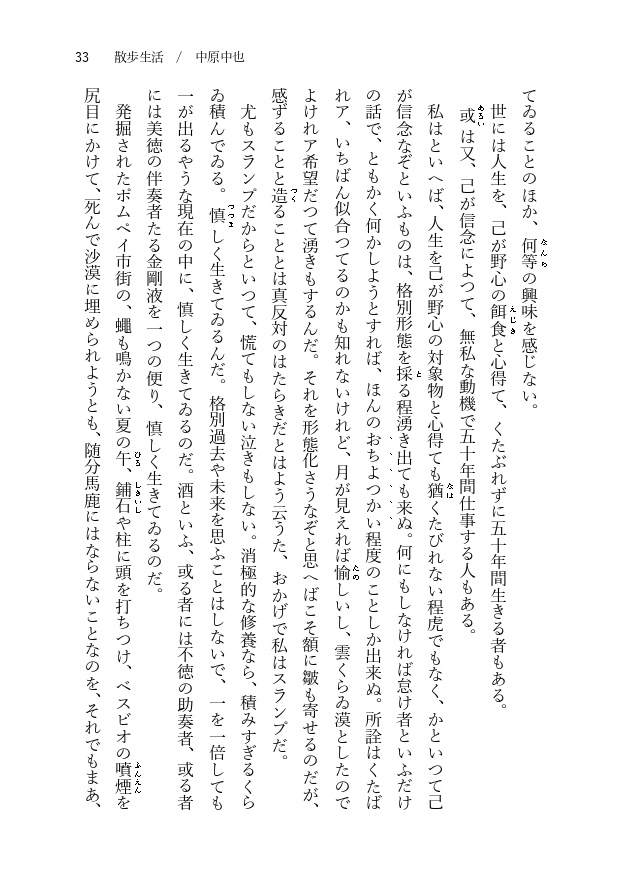 33　散歩生活　/　中原中也
てゐることのほか、何等の興味を感じない。
世には人生を、己が野心の餌食と心得て、くたぶれずに五十年間生きる者もある。
或は又、己が信念によつて、無私な動機で五十年間仕事する人もある。
私はといへば、人生を己が野心の対象物と心得ても猶くたびれない程虎でもなく、かといつて己
が信念なぞといふものは、格別形態を採る程湧き出ても来ぬ。何にもしなければ怠け者といふだけ
の話で、ともかく何かしようとすれば、ほんのおちよつかい程度のことしか出来ぬ。所詮はくたば
れア、いちばん似合つてるのかも知れないけれど、月が見えれば愉しいし、雲くらゐ漠としたので
よけれア希望だつて湧きもするんだ。それを形態化さうなぞと思へばこそ額に皺も寄せるのだが、
感ずることと造ることとは真反対のはたらきだとはよう云うた、おかげで私はスランプだ。
尤もスランプだからといつて、慌てもしない泣きもしない。消極的な修養なら、積みすぎるくら
ゐ積んでゐる。慎しく生きてゐるんだ。格別過去や未来を思ふことはしないで、一を一倍しても
一が出るやうな現在の中に、慎しく生きてゐるのだ。酒といふ、或る者には不徳の助奏者、或る者
には美徳の伴奏者たる金剛液を一つの便り、慎しく生きてゐるのだ。
発掘されたポムペイ市街の、蠅も鳴かない夏の午、鋪石や柱に頭を打ちつけ、ベスビオの噴煙を
尻目にかけて、死んで沙漠に埋められようとも、随分馬鹿にはならないことなのを、それでもまあ、